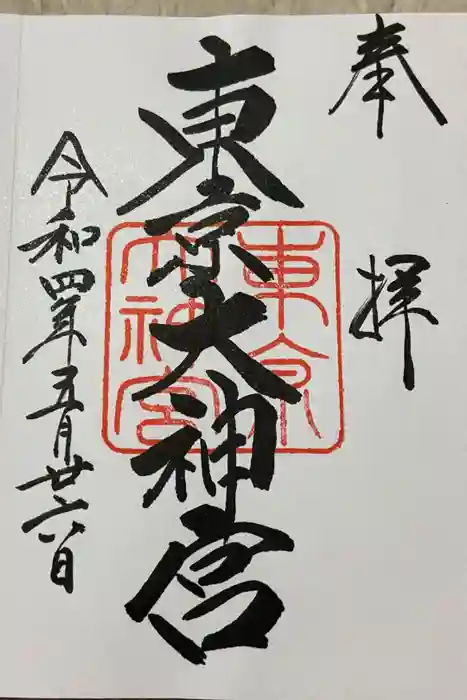 奉拝
東京大神宮
東京大神宮
令和四年五月廿六日